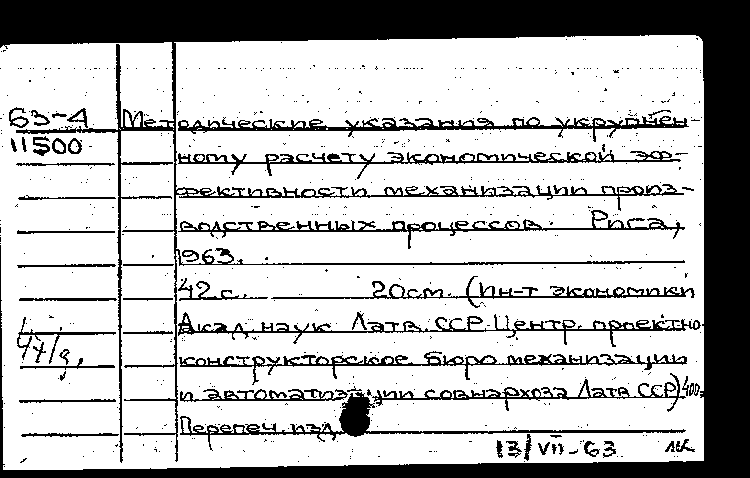 63-4 Методические указания по укрупнен-
11500 ному расчету экономической эф-
фективности механизации произ-
водственных процессов. Рига,
1963.
42 с. 20см. (Ин-т экономики
Акад. наук Латв. ССР. Центр. проектно-
конструкторское бюро механизации
и автоматизации совнархоза Латв ССР) 400э
Перепеч. изд.
13/VII-63